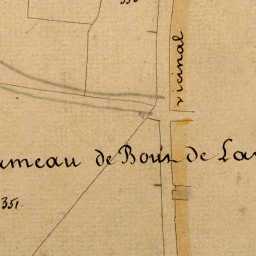 vicinal
ameau de Bouis de La
351